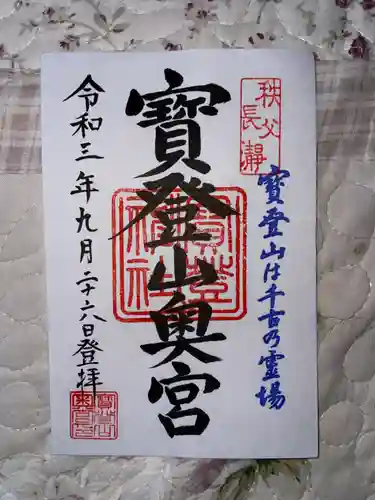 秩父
長瀞
寳登山は千古乃霊場
寳登山奥宮
寳登山神社
令和三年九月二十六日登拝